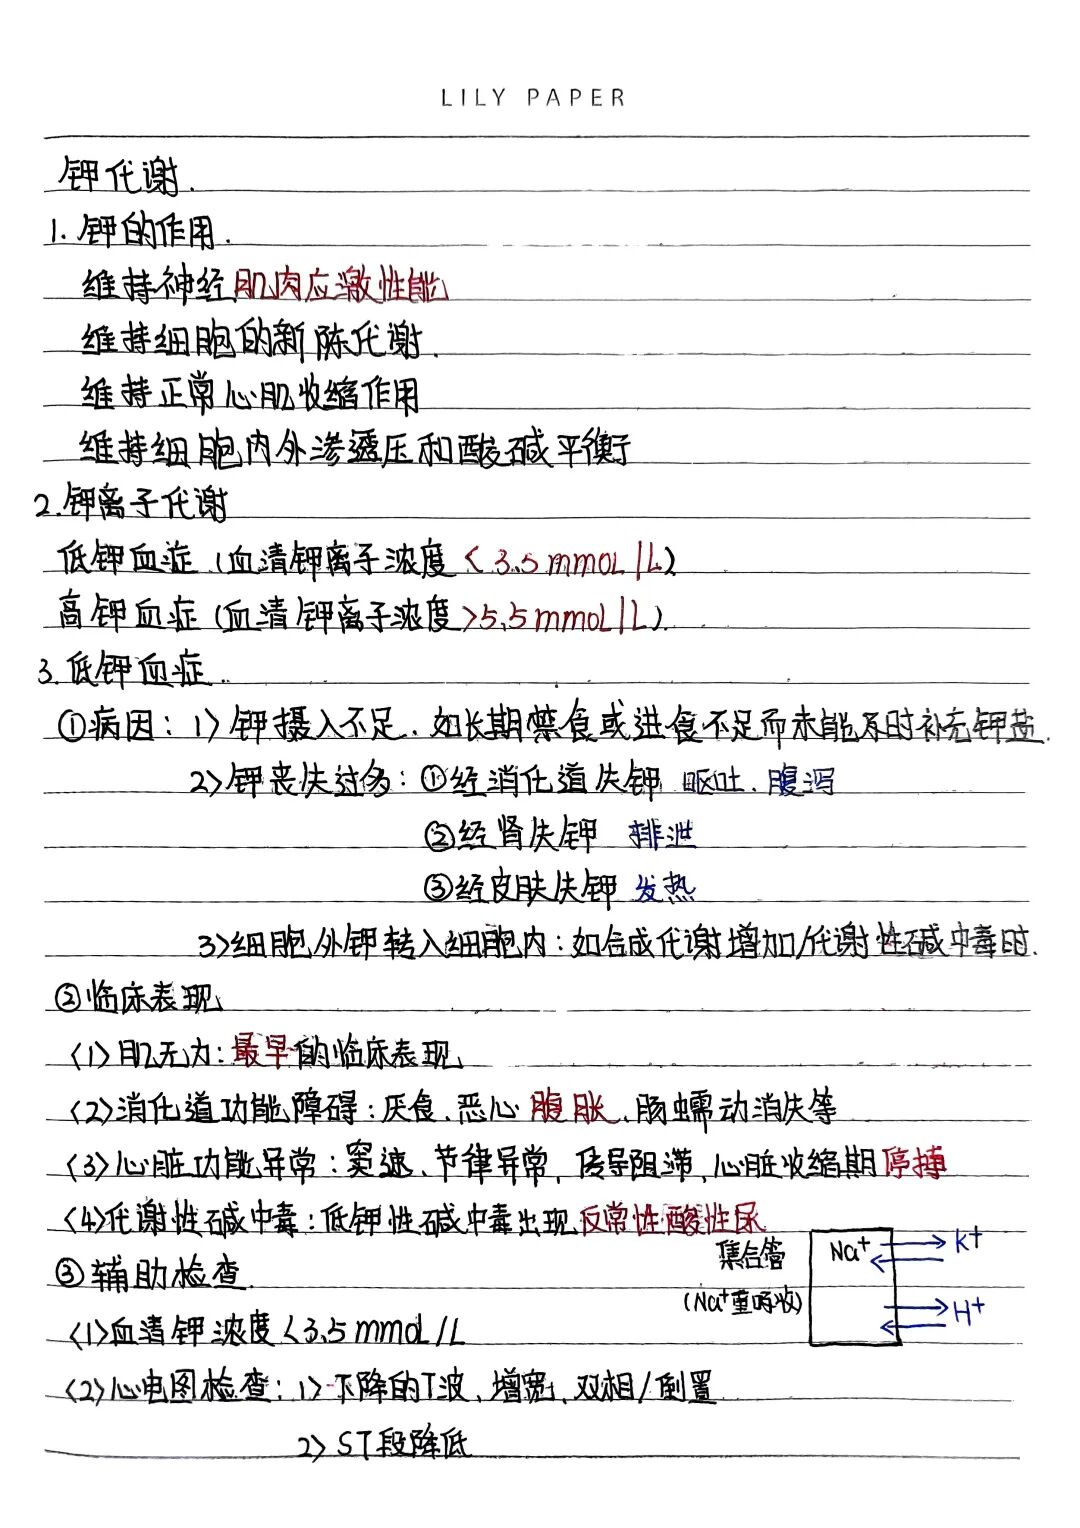 LILY PAPER
钾代谢.
1. 钾的作用.
维持神经肌肉应激性能
维持细胞的新陈代谢.
维持正常心肌收缩作用
维持细胞内外渗透压和酸碱平衡
2.钾离子代谢
低钾血症 (血清钾离子浓度 <3.5mmoL/L)
高钾血症 (血清钾离子浓度>5.5mmoL/L).
3.低钾血症..
①病因: 1>钾摄入不足、如长期禁食或进食不足而未能及时补充钾盐.
2>钾丧失过多: ①经消化道失钾 呕吐、腹泻
②经肾失钾 排泄
③经皮肤失钾 发热
3>细胞外钾转入细胞内: 如合成代谢增加/代谢性碱中毒时.
②临床表现
<1>肌无力: 最早的临床表现
<2>消化道功能障碍: 厌食、恶心 腹胀、肠蠕动消失等
<3>心脏功能异常: 窦速、节律异常、传导阻滞、心脏收缩期停搏
<4>代谢性碱中毒: 低钾性碱中毒出现 反常性酸性尿
集合管 Na+ K+
③辅助检查.
(Na+重吸收) H+
<1>血清钾浓度<3.5mmoL/L
<2>心电图检查: 1>下降的T波、增宽、双相/倒置
2> ST段降低